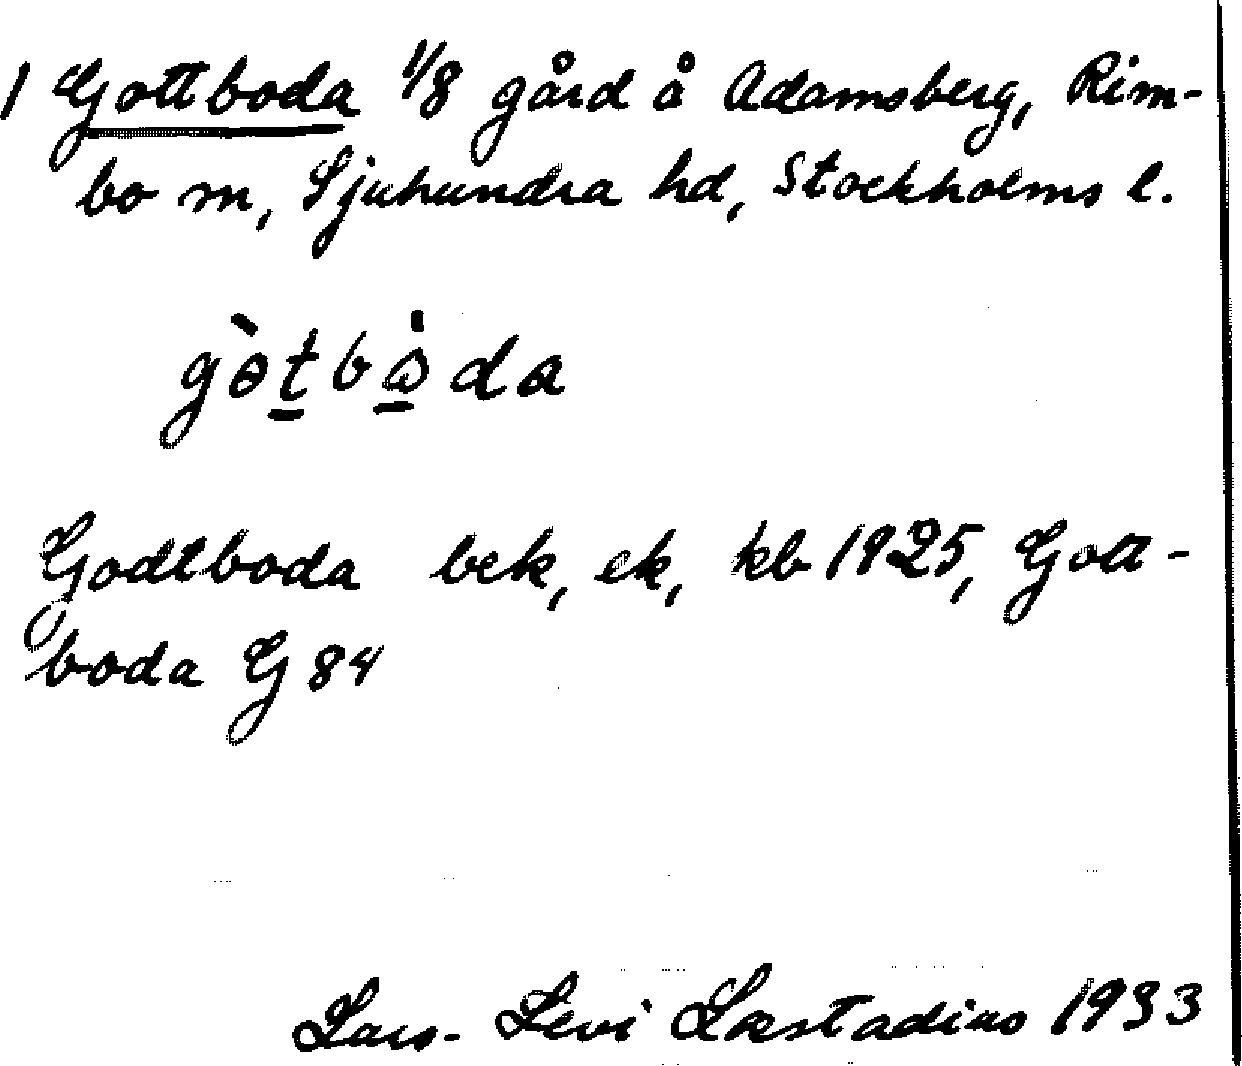 1 Gottboda 1/8 gård å Adamsberg, Rim-
bo sn, Sjuhundra hd, Stockholms l.
gòtbò̱da
Godtboda bek, ek, kb 1925, Gott-
boda G 84
Lars-Levi Læstadius 1933